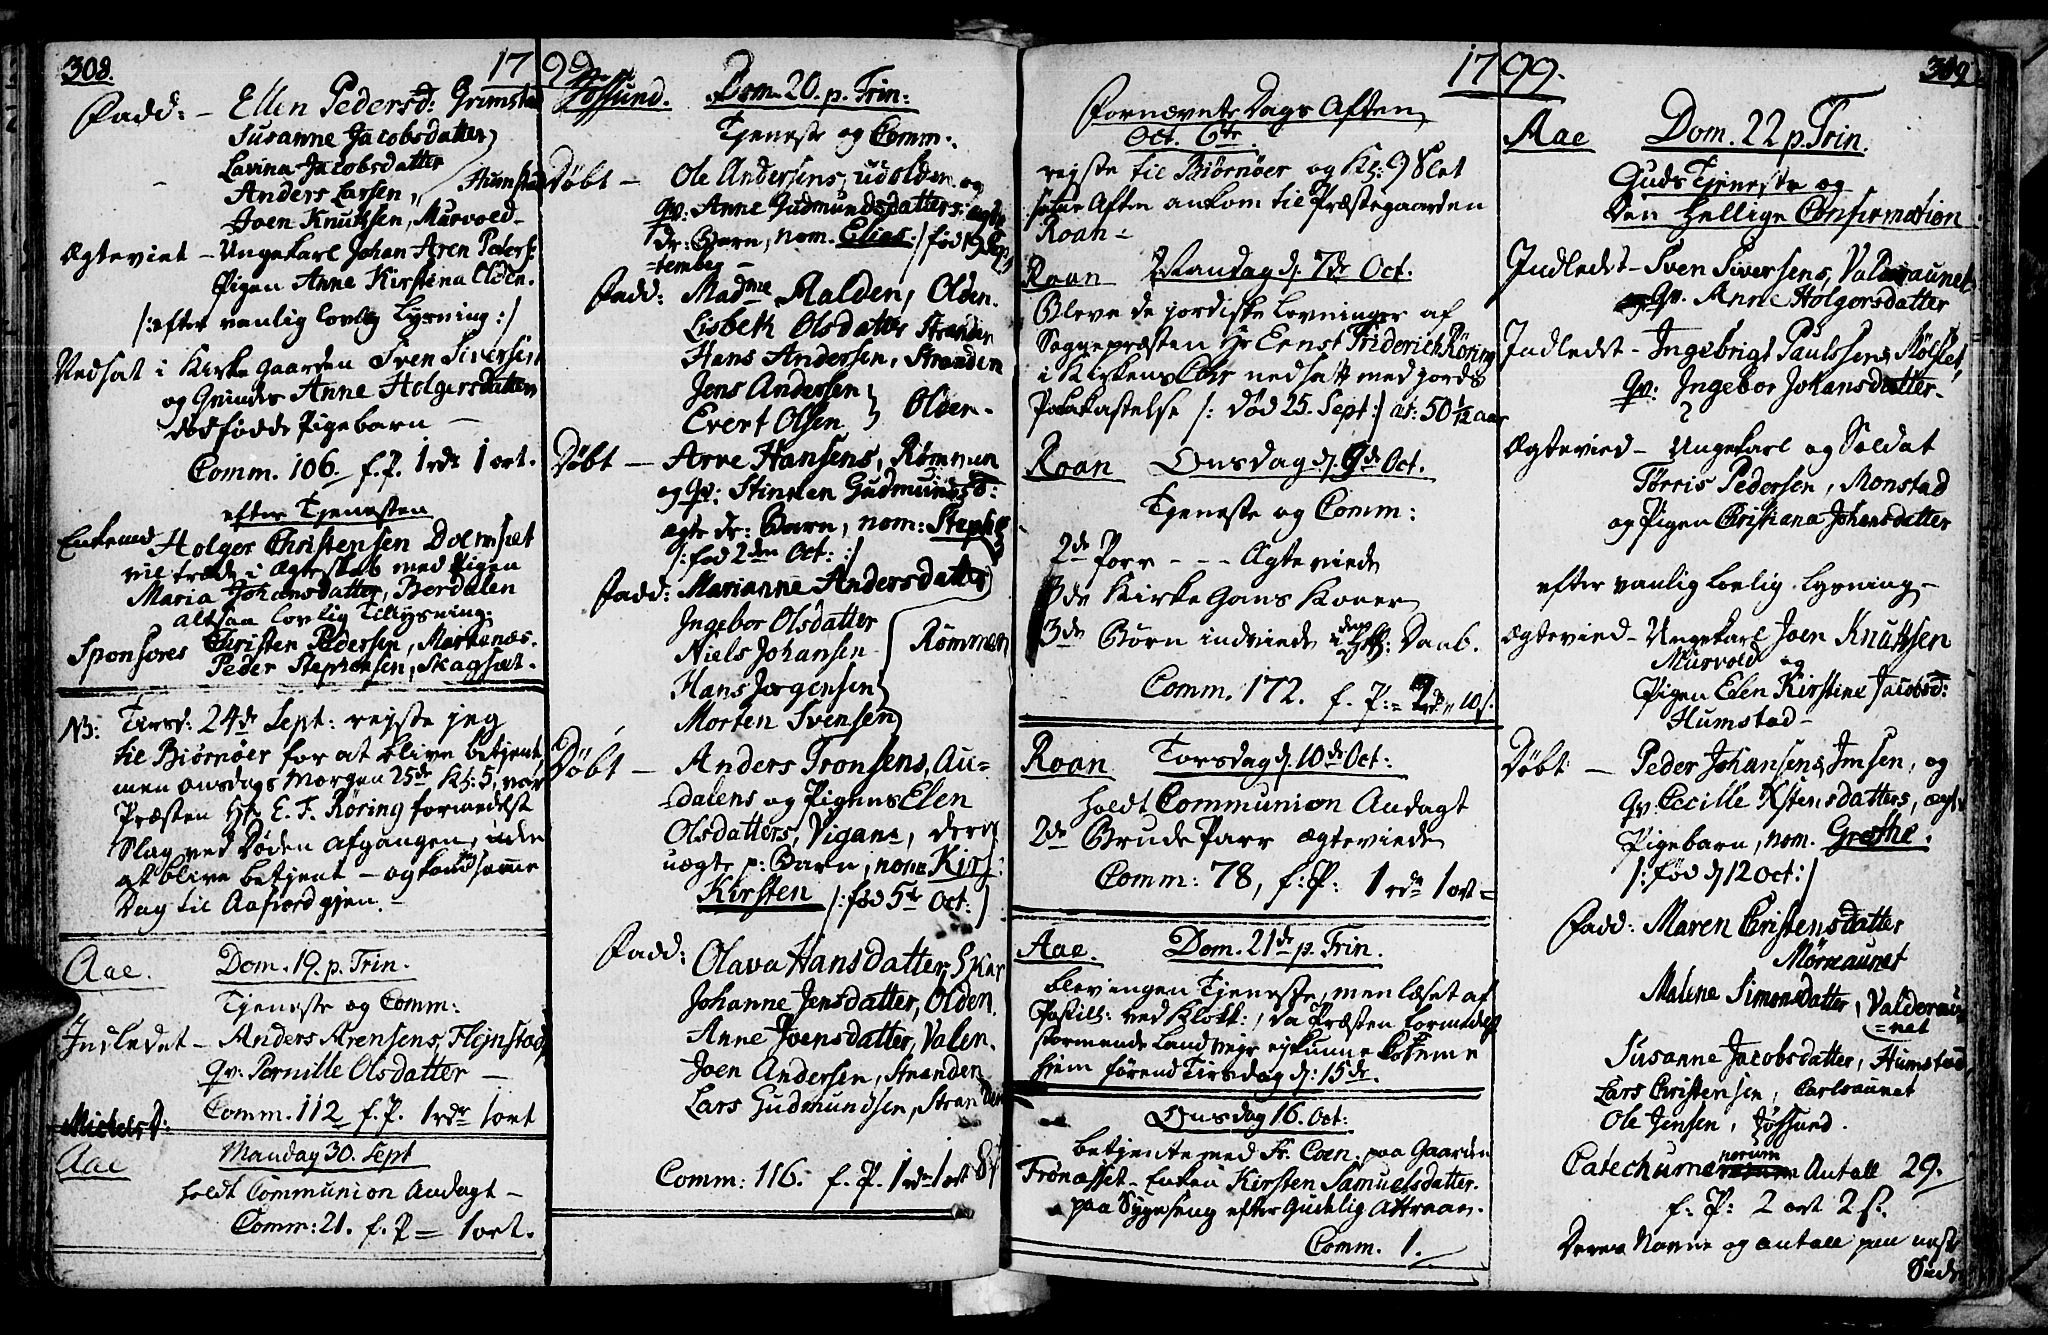 308.
1799
Fadd: - Ellen Pedersd: Grimstad
Susanne Jacobsdatter
Lavina Jacobsdatter
Anders Larsen, Humstad
Joen Knutsen, Murvold
Ægteviet - Ungekarl Johan Aren Peders:
Pigen Anne Kirstena Olden.
/:efter vanlig lovlig Lysning:/
Nedsat i Kirke Gaarden Sven Siversen
og Qvindes Anne Holgersdatters
dødfødde Pigebarn -
Comm. 106. f. P. 1 rdr 1 ort.
efter Tjenesten
Enkemd Holger Christensen Doemsæt
vil træde i Ægteskab med Pigen
Maria Johansdatter, Berdalen
altsaa lovlig Tillysning.
Sponsores Christen Pedersen, Markenæs.
Peder Stephensen, Skagsæt.
NB: Tirsd: 24de Sept: rejste jeg
til Biørnøer for at blive betjent,
men onsdags Morgen 25de Kl: 5, var
Præsten Hr. E. F. Røring formedelst
Slag ved Døden afgangen, uden
at blive betjent - og kom samme
Dag til Aafiord gjen. -
Aae. Dom. 19. p. Trin.
Tjeneste og Comm:
Indledet - Anders Arensens, Flejnstad
Qv: Pernille Olsdatter -
Comm. 112 f. P. 1 rdr 1 ort
Michelsd:
Aae Mandag 30. Sept
holdt Communion Andagt -
Comm: 21. f. P = 1 ort.
Jøssund. Dom. 20. p. Trin:
Tjeneste og Comm:
Døbt - Ole Andersens, udolden og
Qv: Anne Gudmundsdatters ægte
dr: Barn, nom. Elias :/ fød 19 Sep-
tember -
Fadd: Madme Malden, Olden.
Lisbeth Olsdatter Stranden
Hans Andersen, Stranden
Jens Andersen
Evert Olsen } Olden.
Døbt - Arne Hansens, Rømmen
og Qv: Stinken Gudmundsd:
ægte dr: Barn, nom: Stephen
/: fød 2den Oct: :/
Fadd: Marianne Andersdatter
Ingebor Olsdatter
Niels Johansen } Rømmen
Hans Jørgensen
Morten Svensen
Døbt - Anders Tronsens, Au-
dalens og Pigens Elen
Olsdatters, Vigane, deres
uægte p: Barn, nom Kirs:
Kirsten /: fød 5te Oct: /
Fadd: Olava Hansdatter, Skar
Johanne Jensdatter, Olden.
Anne Joensdatter, Valen.
Joen Andersen, Stranden
Lars Gudmundsen, Stranden
Comm: 116. f. P. 1 rdr 1 ort 8 s
1799.
309.
Fornævnte Dags Aften
Oct. 6te
rejste til Biørnøer og Kl: 9 Slet
samme Aften ankom til Præstegaarden
Roan -
Roan Mandag d. 7de Oct.
Bleve de jordiske Levninger af
Sognepræsten Hr Ernst Friderich Røring
i Kirkens Chor nedsatt med jords
Paakastelse /: død 25. Sept :/ at: 50 1/12 aar
Roan Onsdag d. 9de Oct.
Tjeneste og Comm:
2de Parr - - - Ægteviede
3de Kirke Gans Koner
3de Børn indviede i den Daab.
Comm. 172. f. P: = 2 rdr 10 s.
Roan Torsdag d. 10de Oct:
holdt Communion Andagt
2de Brude Parr ægteviede
Comm: 78, f: P: 1 rdr 1 ort =
Aae. Dom. 21de p. Trin.
blev ingen Tjeneste, men læset af
Postill: ved Klokk:, da Præsten formedelst
stormende Land vejr ej kunne komme
hjem førend Tirsdag d: 15de.
Onsdag 16. Oct:
betjente med Sr. Coen. paa Gaarden
Trønæsset - Enken Kirsten Samuelsdatter.
paa Sygeseng efter Gudelig Attraae.
Comm. 1.
Aae Dom. 22 p. Trin.
Guds Tjeneste og
Den hellige Confirmation
Indledet - Sven Siversens, Valderaunet
Qv. Anne Holgersdatter
Indledet - Ingebrigt Paulsens Mølslet,
Qv: Ingebor Johansdatter.
Ægteviede - Ungekarl og Soldat
Tørris Pedersen, Monstad
og Pigen Christiana Johansdatter
efter vanlig lovlig Lysning -
Ægteviede - Ungekarl Joen Knutsen
Murvold og
Pigen Elen Kirstine Jacobsd:
Humstad -
Døbt - Peder Johansens Imsen, og
Qv. Cecille Xstensdatters, ægte
Pigebarn, nom. Grethe.
/: fød d 12 Oct: /
Fadd: Maren Christensdatter
Mørreaunet
Malene Simonsdatter, Valderau-
=net
Susanne Jacobsdatter, Humstad,
Lars Christensen, Carlsaunet
Ole Jensen, Jøssund.
Catechumenorum Antall 29.
f: P: 2 ort 2 s.
Deres Navne og antall paa neste
Side